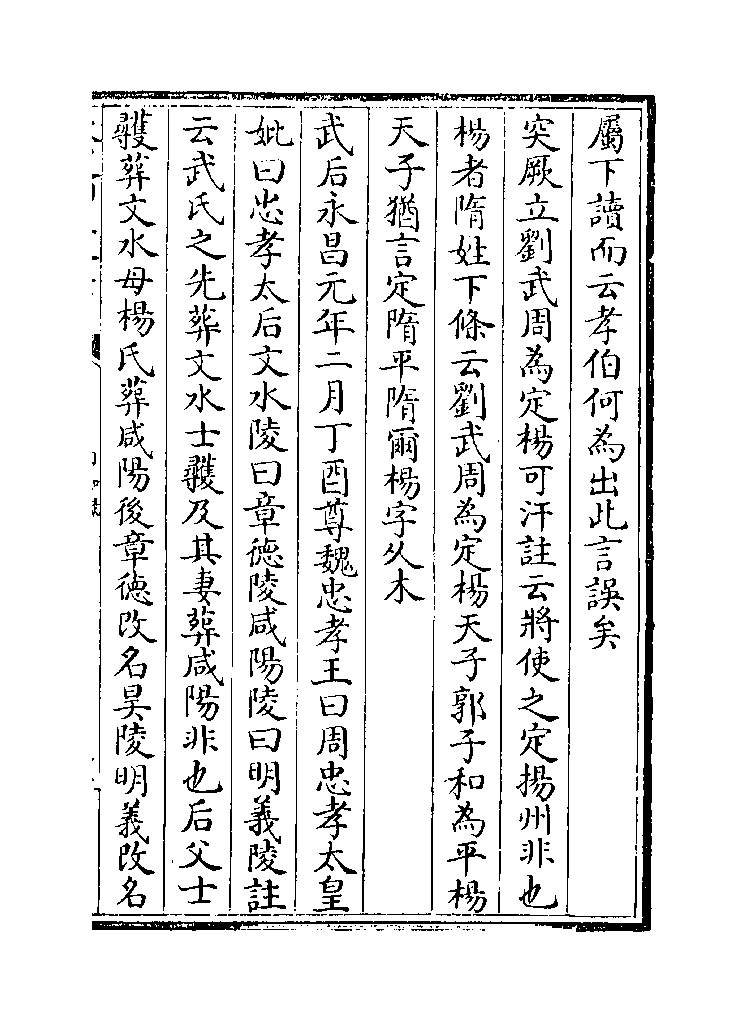 屬下讀而云孝伯何為出此言誤矣
突厥立劉武周為定楊可汗註云將使之定揚州非也
楊者隋姓下條云劉武周為定楊天子郭子和為平楊
天子猶言定隋平隋爾楊字从木
武后永昌元年二月丁酉尊魏忠孝王曰周忠孝太皇
妣曰忠孝太后文水陵曰章徳陵咸陽陵曰明義陵註
云武氏之先葬文水士彠及其妻葬咸陽非也后父士
彠葬文水母楊氏葬咸陽後章徳改名昊陵明義改名